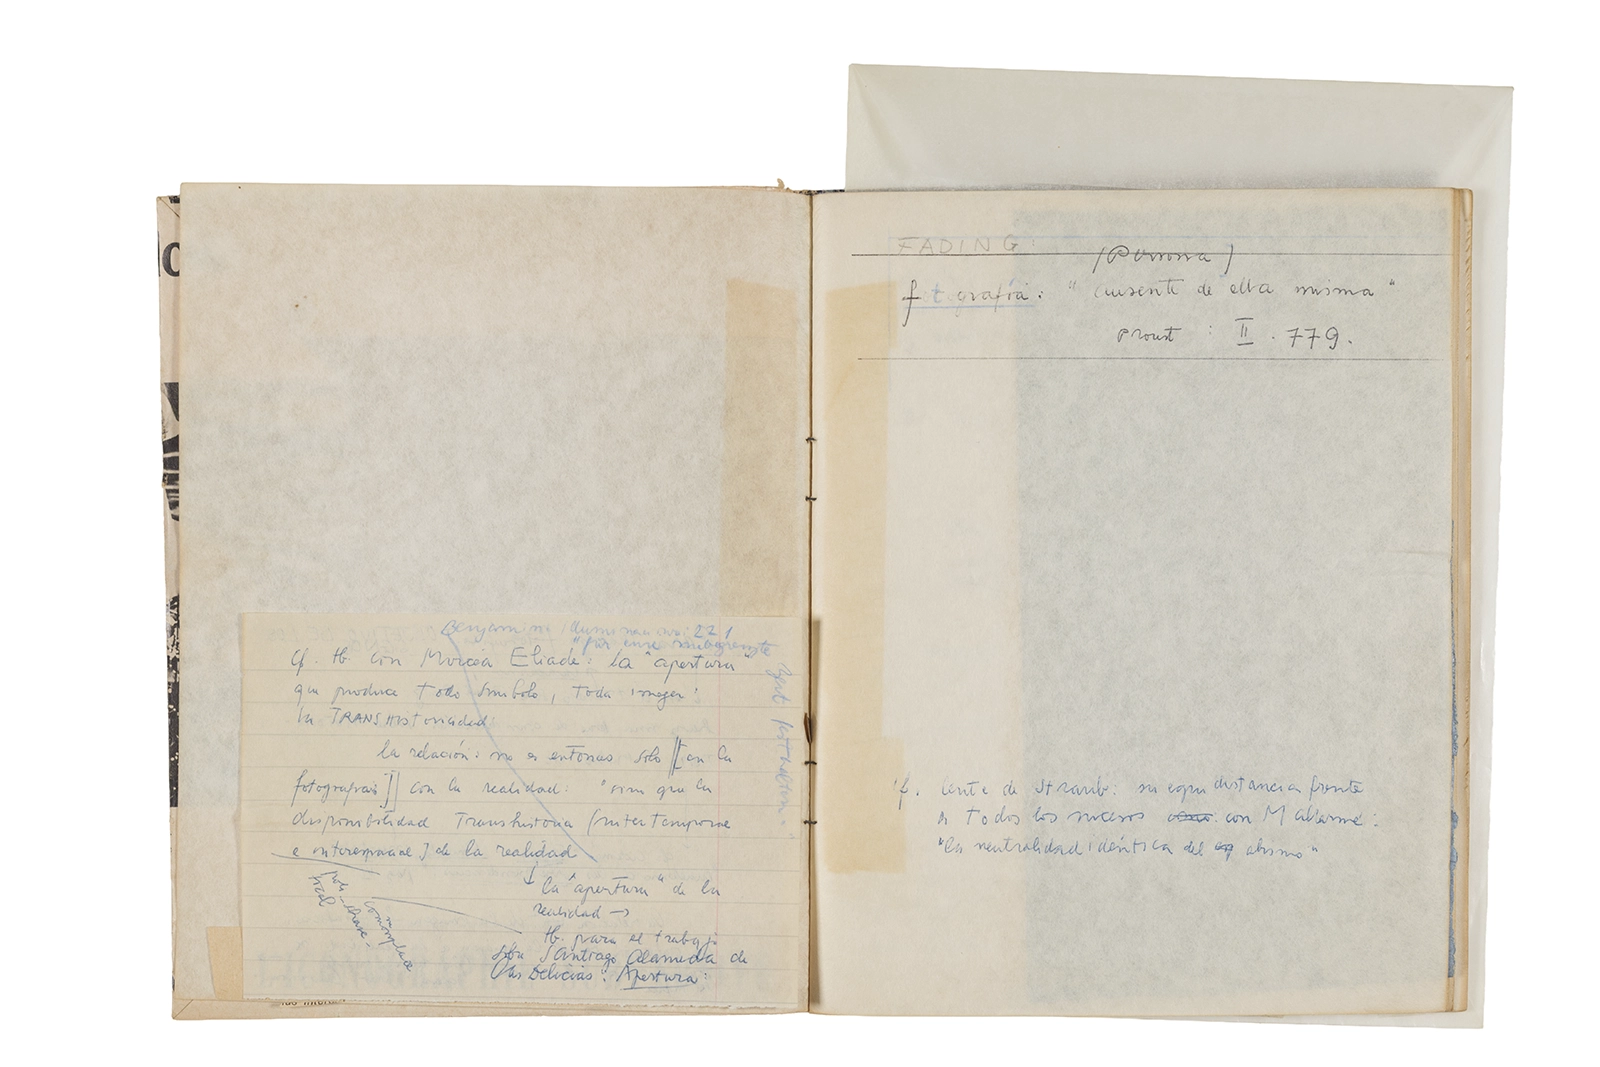 Benjamin: Iluminaciones: 221
"für ewig
cf. tb. con Mircea Eliade: la "apertura"
que produce todo símbolo, toda imagen:
la TRANSHistoricidad
la relación: no es entonces solo [[en la
fotografía]] con la realidad: "sino que la
disponibilidad Transhistoria (intertemporal
e interespacial) de la realidad
↓ la "apertura" de la
realidad →
tb. para el trabajo
sobre Santiago Alameda de
las Delicias: Apertura:
commonplace
festhalten"
FADING:
(Persona)
fotografía: "ausente de ella misma"
Proust : II . 779.
cf. lente de Straub: su equidistancia frente
a Todos los sucesos con Mallarmé:
"la neutralidad idéntica del abismo"